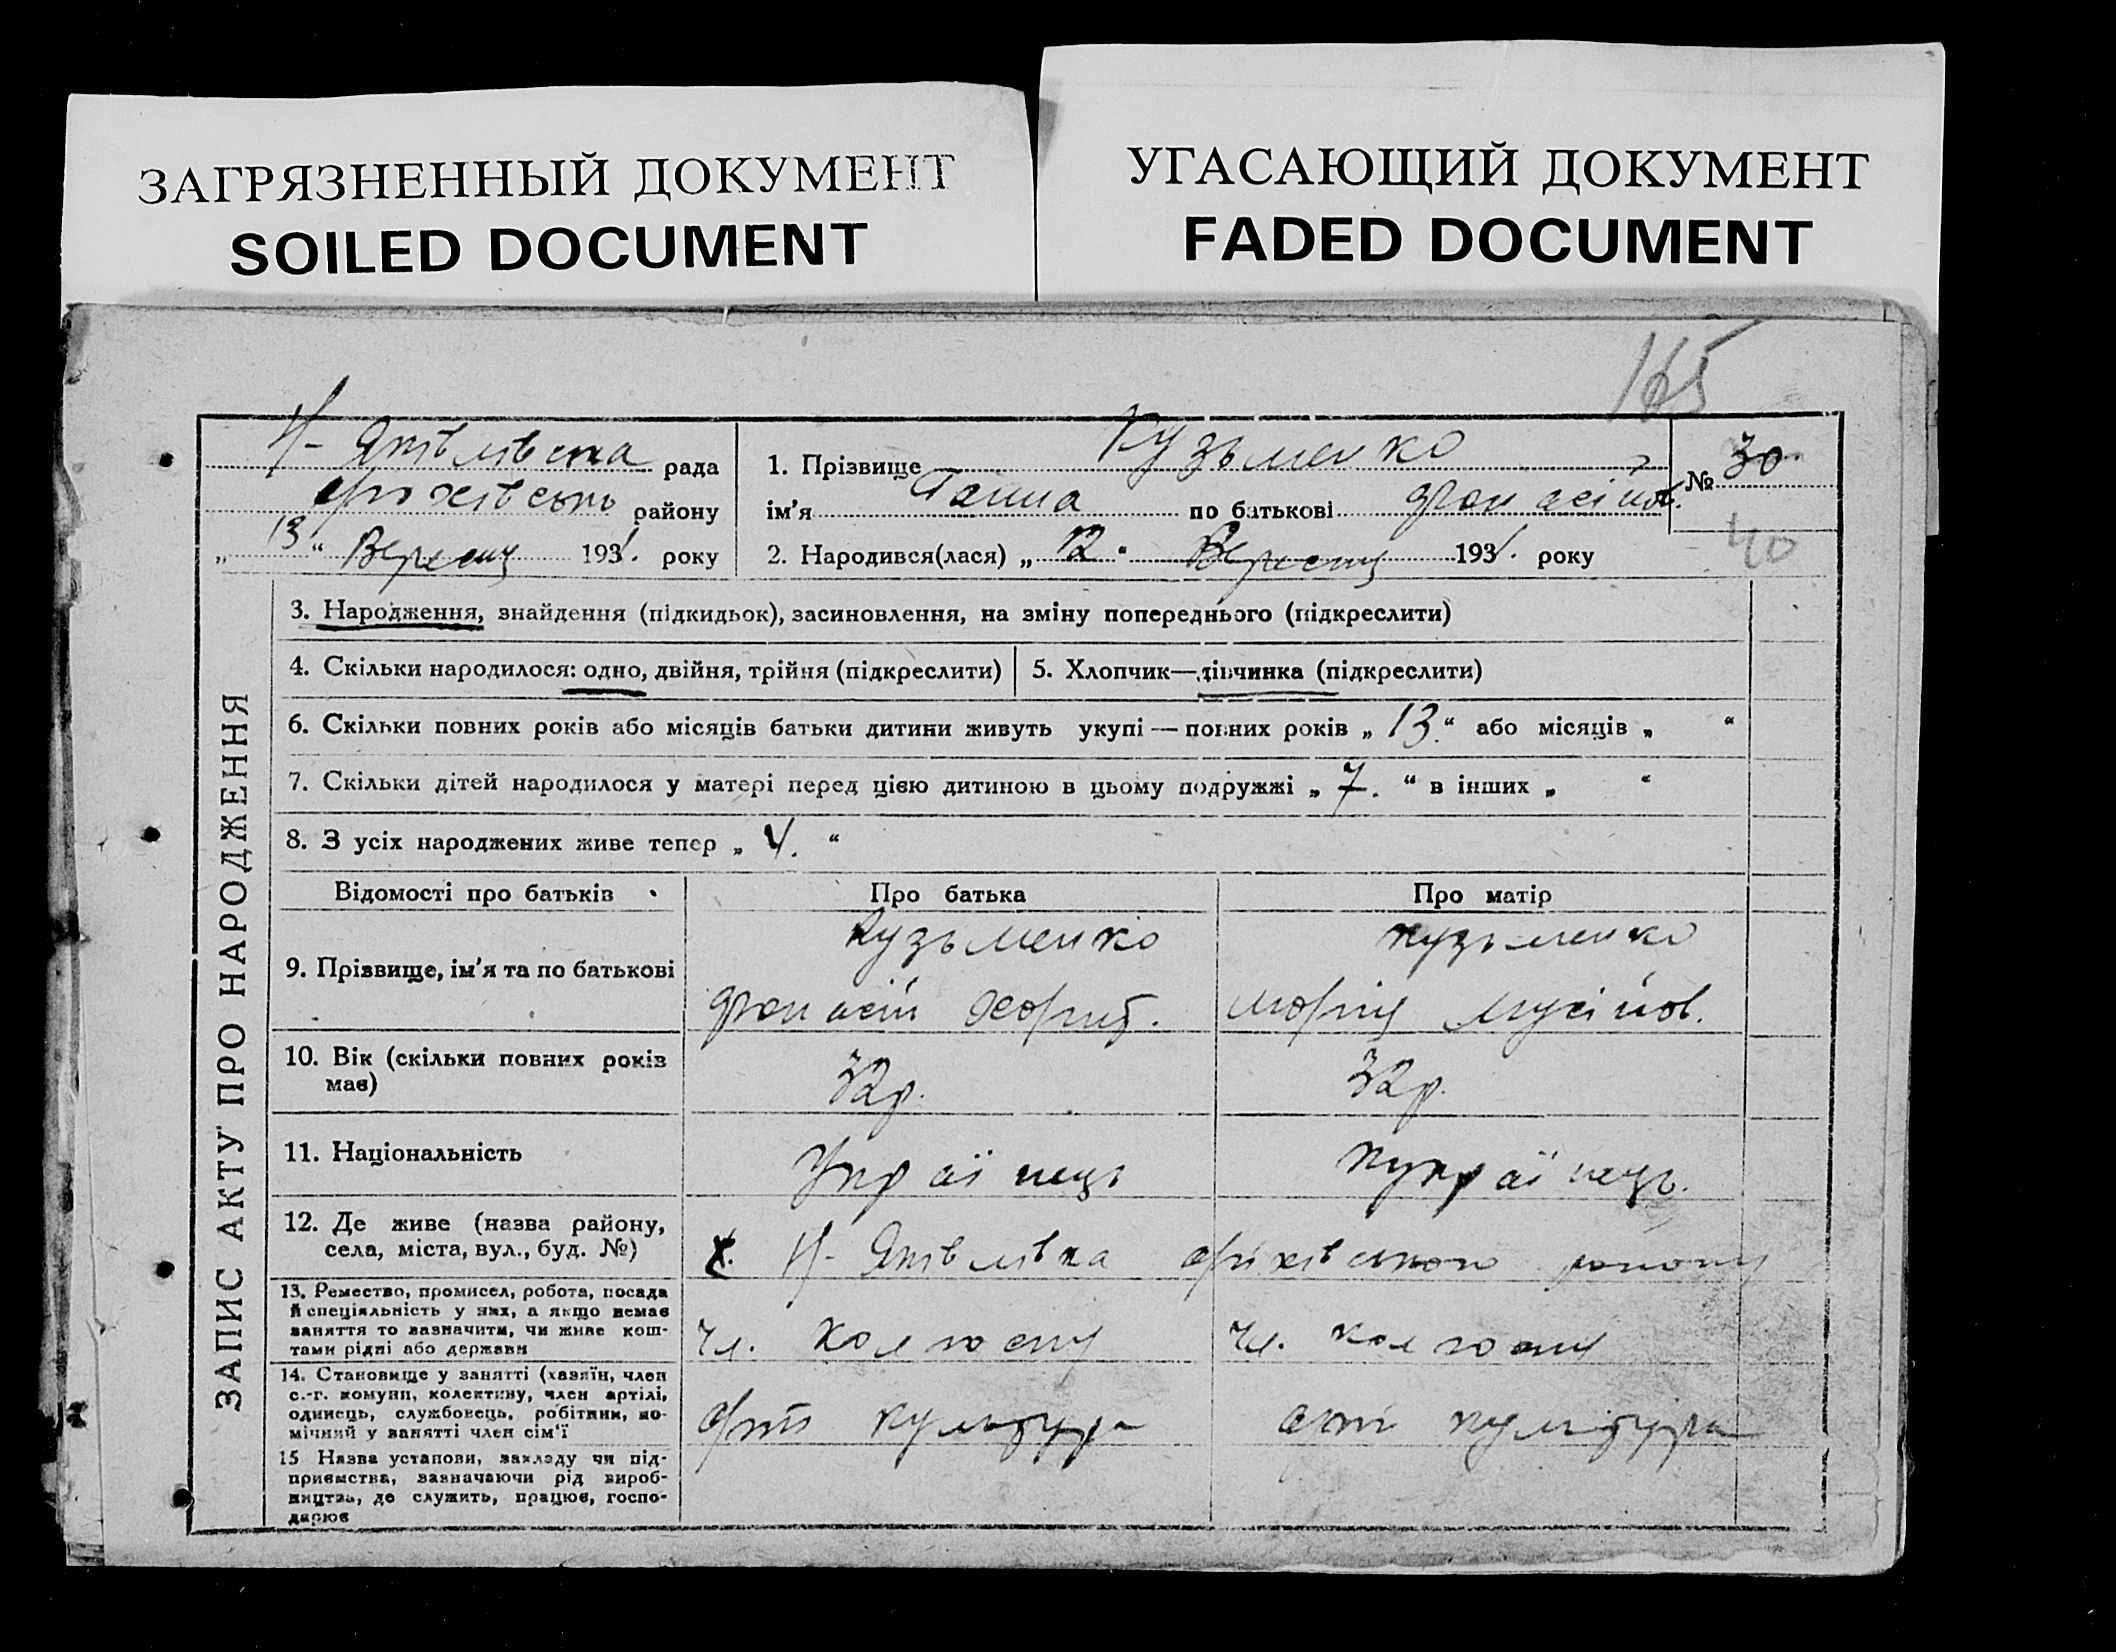 ЗАГРЯЗНЕННЫЙ ДОКУМЕНТ
SOILED DOCUMENT
УГАСАЮЩИЙ ДОКУМЕНТ
FADED DOCUMENT
165
Н-Яківлівська рада
Оріхівськ району
„ 13 “ Вересня 1931. року
1. Прізвище Кузьменко
ім'я Ганна по батькові
2. Народився(лася) „ 12 “ Вересня 1931. року
№ 30
40
ЗАПИС АКТУ ПРО НАРОДЖЕННЯ
3. Народження, знайдення (підкидьок), засиновлення, на зміну попереднього (підкреслити)
4. Скільки народилося: одно, двійня, трійня (підкреслити)
5. Хлопчик—дівчинка (підкреслити)
6. Скільки повних років або місяців батьки дитини живуть укупі — повних років „ 13. “ або місяців „ “
7. Скільки дітей народилося у матері перед цією дитиною в цьому подружжі „ 7. “ в інших „ “
8. З усіх народжених живе тепер „ 4. “
Відомості про батьків
Про батька
Про матір
9. Прізвище, ім'я та по батькові
Кузьменко
Кузьменко
Марія Мусійов.
10. Вік (скільки повних років
має)
32р.
32р.
11. Національність
Українець
12. Де живе (назва району,
села, міста, вул., буд. №)
Н-Яківлівка Оріхівського району
13. Ремество, промисел, робота, посада
й спеціяльність у них, а якщо немає
заняття то зазначити, чи живе кош-
тами рідні або держави
чл. колгоспу
чл. колгоспу
14. Становище у занятті (хазяїн, член
с.-г. комуни, колективу, член артілі,
одинець, службовець, робітник, по-
мічний у занятті член сім'ї
культура
культура
15 Назва установи, закладу чи під-
приємства, зазначаючи рід вироб-
ництва, де служить, працює, госпо-
дарює